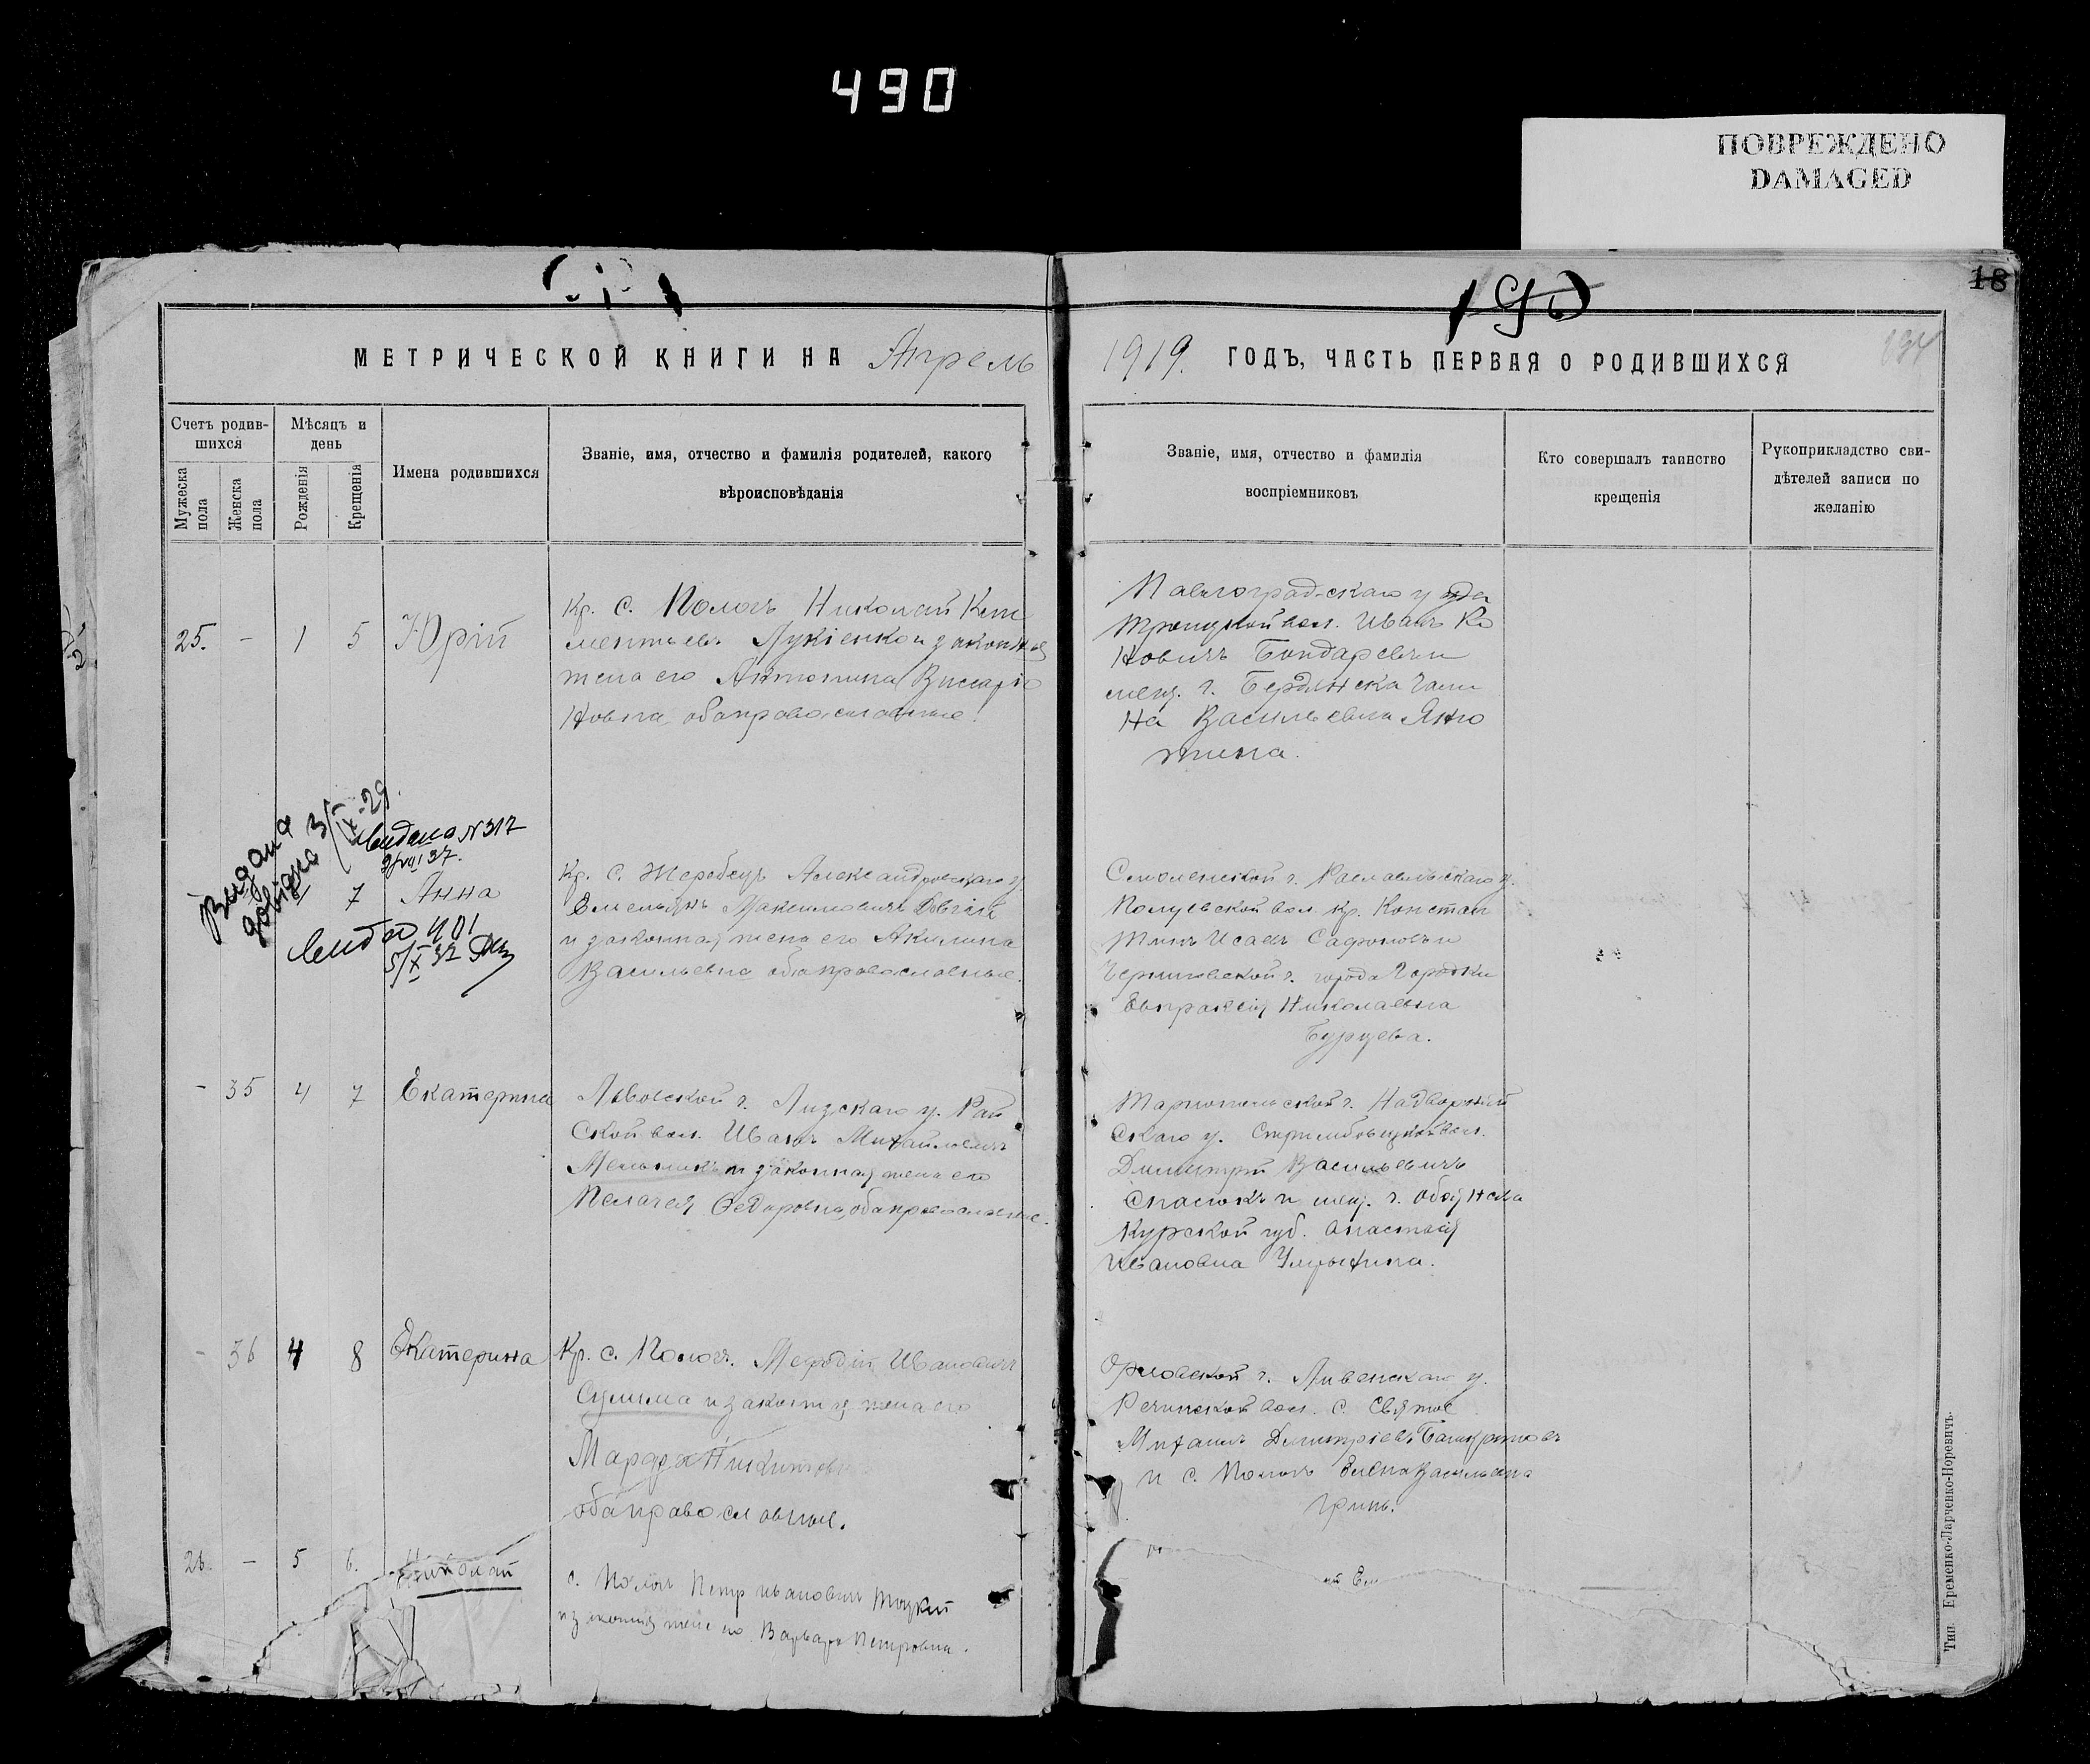 490
ПОВРЕЖДЕНО
DAMAGED
18
МЕТРИЧЕСКОЙ КНИГИ НА Апрель 1919. ГОДЪ, ЧАСТЬ ПЕРВАЯ О РОДИВШИХСЯ
Счетъ родив-
шихся
Мужеска пола
Женска пола
Мѣсяцъ и
день
Рожденія
Крещенія
Имена родившихся
Званіе, имя, отчество и фамилія родителей, какого
вѣроисповѣданія
Званіе, имя, отчество и фамилія
воспріемниковъ
Кто совершалъ таинство
крещенія
Рукоприкладство сви-
дѣтелей записи по
желанію
25. - 1 5 Юрій
Кр. С. Пологъ Николай Кли
ментьевъ Лукіенко и законная
жена его Антонина Виссаріо
новна, оба православные.
Павлоградскаго уѣзда
Троицкой вол. Иванъ
Бондаревъ и
мещ. г. Бердянска Гали
на Васильевна
Видана
довідка 3/IX-29.
Видано N 317
2/VIII 37.
7 Анна
901
5/X 37
Кр. С. Жеребецъ Александровскаго у.
Емельянъ Максимовичъ Довгаль
и законная жена его Акилина
Васильевна оба православные.
Смоленской г. Рославльскаго у.
вол. кр. Констан
тинъ Исаевъ Сафоновъ и
Черниговской г. города Городни
Евпраксія Николаевна
Бурцева.
- 35 4 7 Екатерина
Львовской г. у. Рай
ской вол. Иванъ Михайловичъ
Мельникъ и законная жена его
Пелагея Ѳедоровна, оба православные.
Тарнопольской г. Надворнян
скаго у. вол.
Димитрій Васильевичъ
Спасюкъ и мещ. г. Обоянска
Курской губ. Анастасія
Ивановна
- 36 4 8 Екатерина
Кр. с. Пологъ. Мефодій Ивановичъ
Сулима и законная жена его
Марфа Никитовна
оба православные.
Орловской г. Ливенскаго у.
Речицкой вол. С. Святое
Михаилъ Димитріевъ
и С. Пологъ Елена Васильевна
Гринь.
26. - 5 6. Николай
с. Пологъ Петр Ивановичъ Троцкій
и законная жена его Варвара Петровна.
Тип. Еременко-Ларченко-Норевичъ.